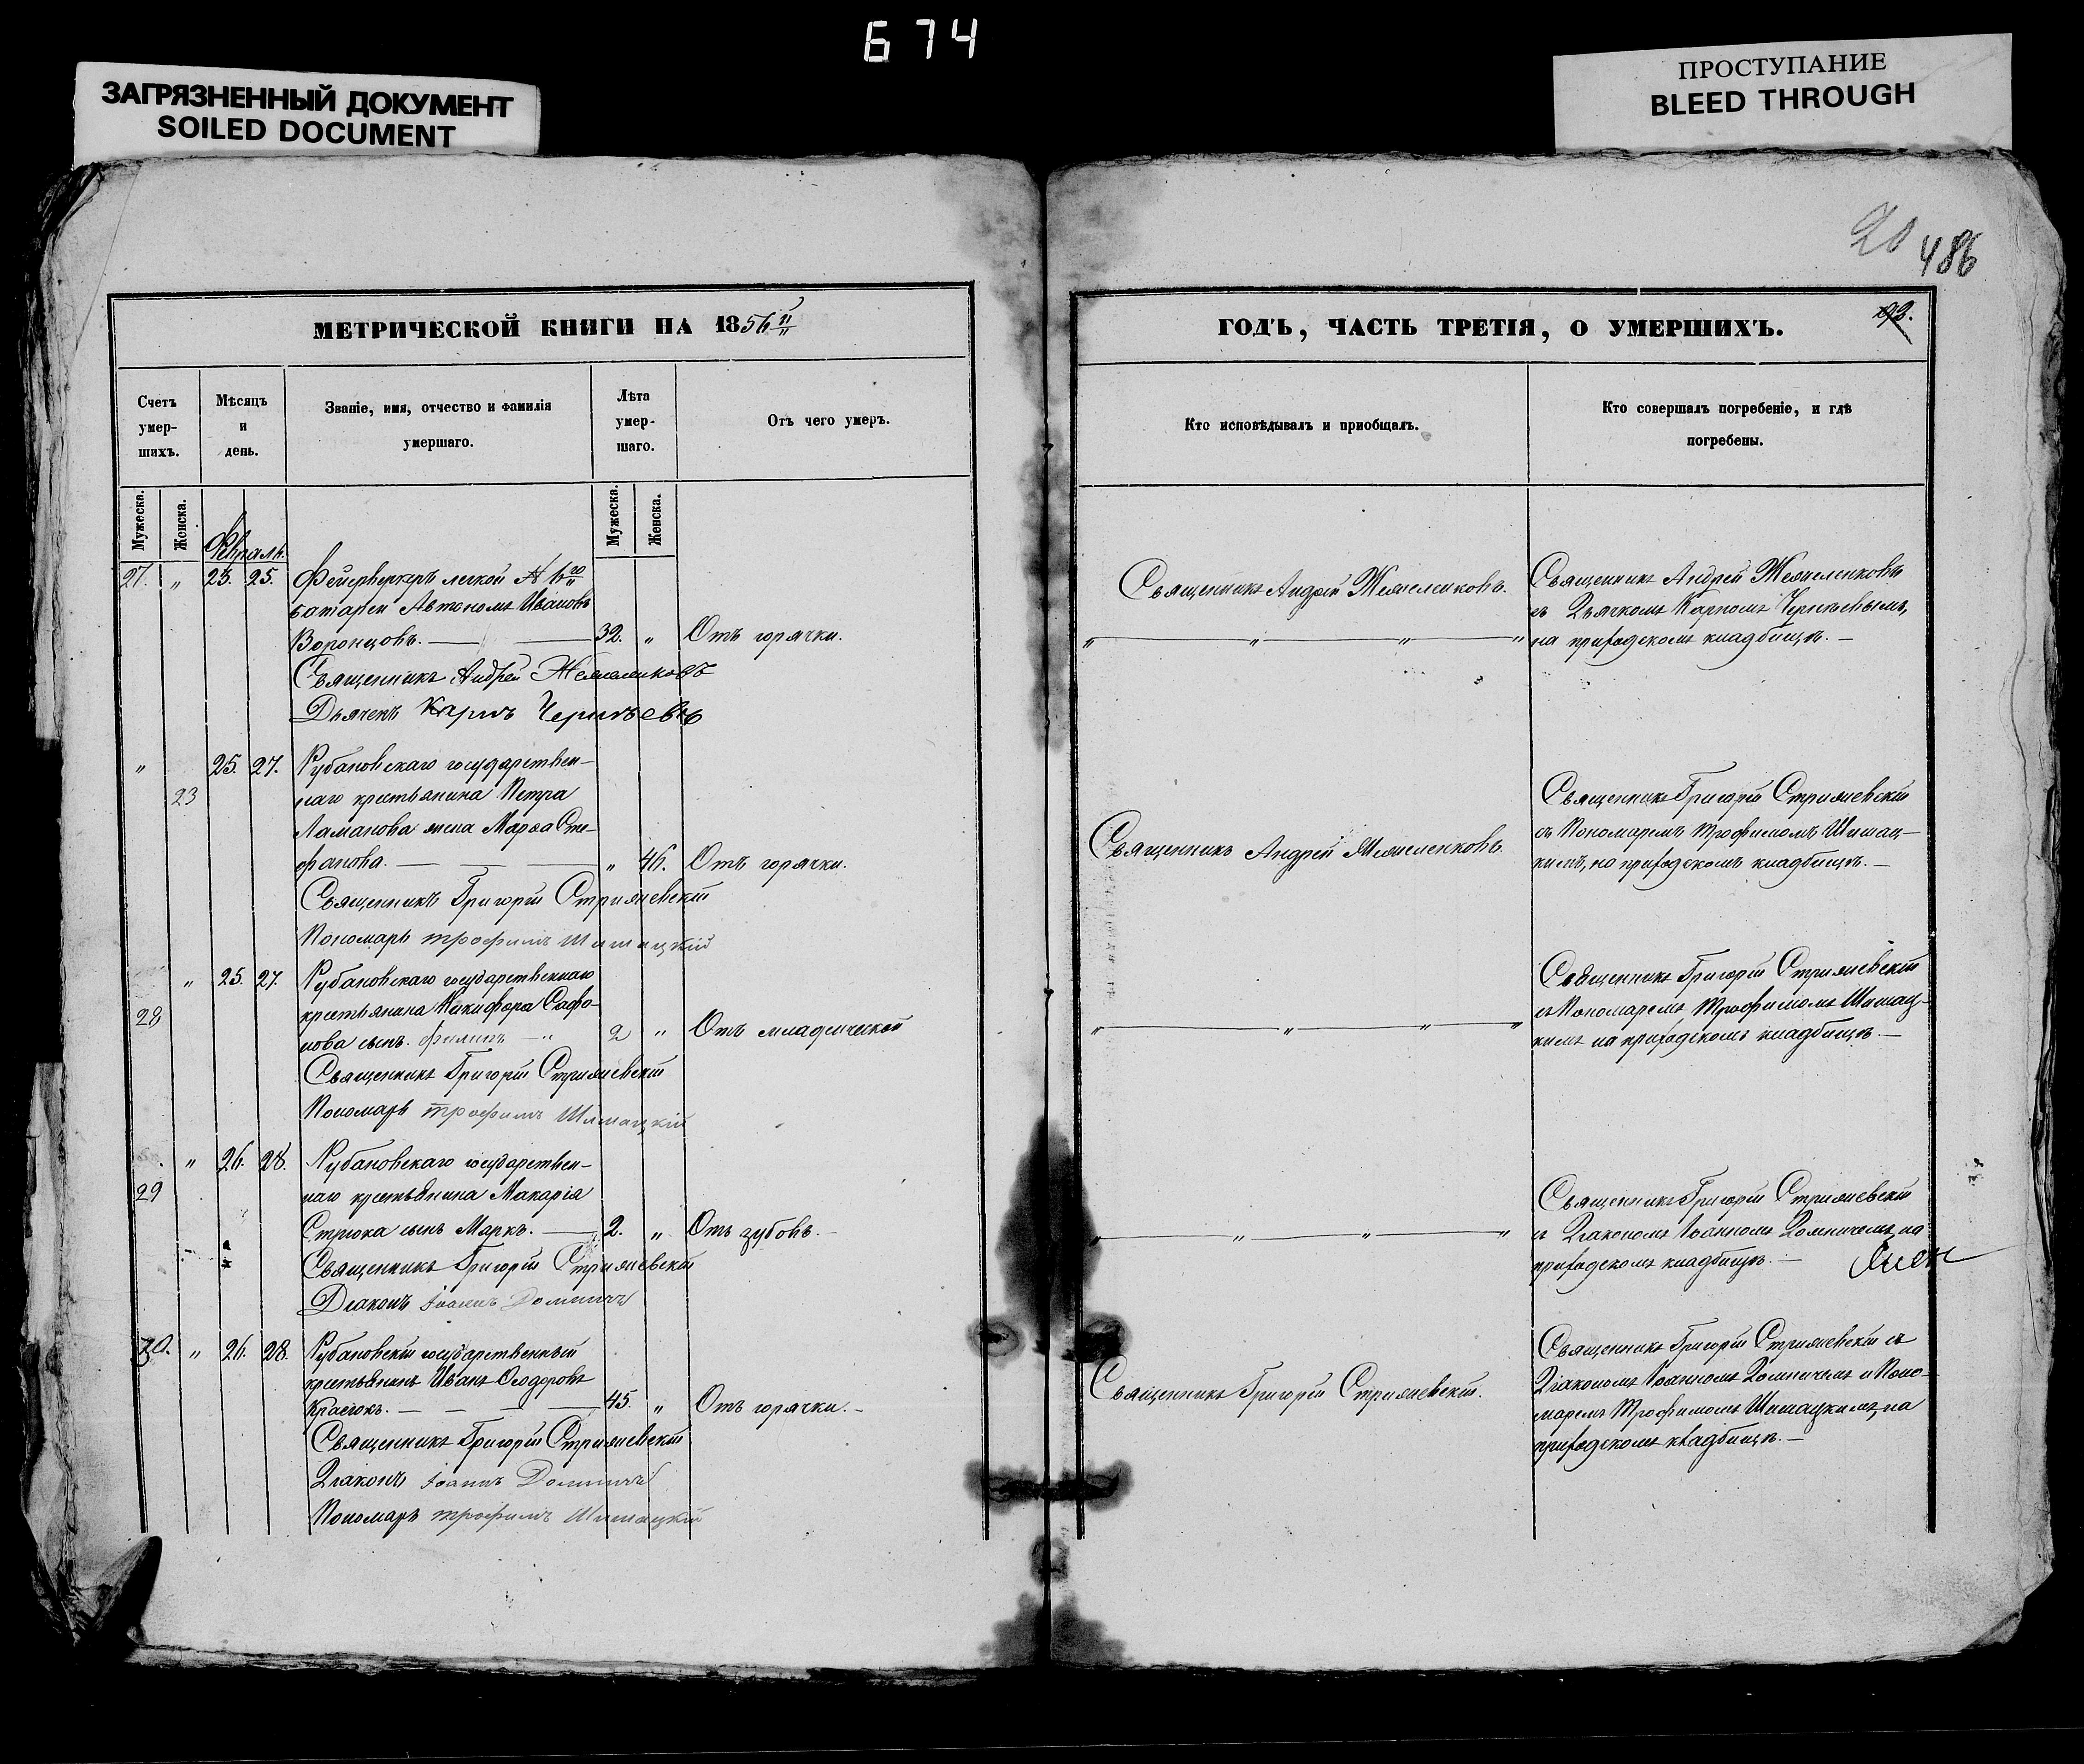 674
ЗАГРЯЗНЕННЫЙ ДОКУМЕНТ
SOILED DOCUMENT
ПРОСТУПАНИЕ
BLEED THROUGH
20
486
МЕТРИЧЕСКОЙ КНИГИ НА 1856
Счетъ умер-шихъ.
Мѣсяцъ и день.
Званіе, имя, отчество и фамилія умершаго.
Лѣта умер-шаго.
Отъ чего умеръ.
Мужеска.
Женска.
Мужеска.
Женска.
Февраль.
27. " 23. 25. Фейерверкеръ легкой № 6го
батареи Автономъ Ивановъ
Воронцовъ. — 32. " Отъ горячки.
Священникъ Андрей
Дьячекъ Карпъ
" 23 25. 27. Рубановскаго государствен-
наго крестьянина Петра
Ламанова жена Марѳа Сте-
фанова. — " 46. Отъ горячки.
Священникъ Григорій Стрижевскій
Пономарь Трофимъ Шишацкій
28 " 25. 27. Рубановскаго государственнаго
крестьянина Никифора Сафо-
нова сынъ Филипъ — 2 " Отъ младенческой
Священникъ Григорій Стрижевскій
Пономарь Трофимъ Шишацкій
29 " 26. 28. Рубановскаго государствен-
наго крестьянина Макарія
Стрюка сынъ Маркъ. — 2. " Отъ зубовъ.
Священникъ Григорій Стрижевскій
Діаконъ Іоаннъ
30. " 26. 28. Рубановскій государственный
крестьянинъ Иванъ Ѳеодоровъ
— 45. " Отъ горячки.
Священникъ Григорій Стрижевскій
Діаконъ Іоаннъ
Пономарь Трофимъ Шишацкій
ГОДЪ, ЧАСТЬ ТРЕТІЯ, О УМЕРШИХЪ.
93.
Кто исповѣдывалъ и приобщалъ.
Кто совершалъ погребеніе, и гдѣ погребены.
Священникъ Андрей
Священникъ Андрей
съ Дьячкомъ Карпомъ
на приходскомъ кладбищѣ.
Священникъ Андрей
Священникъ Григорій Стрижевскій
съ Пономаремъ Трофимомъ Шишац-
кимъ, на приходскомъ кладбищѣ. —
Священникъ Григорій Стрижевскій
съ Пономаремъ Трофимомъ Шишац-
кимъ на приходскомъ кладбищѣ. —
Священникъ Григорій Стрижевскій
съ Діакономъ Іоанномъ на
приходскомъ кладбищѣ. —
Священникъ Григорій Стрижевскій.
Священникъ Григорій Стрижевскій съ
Діакономъ Іоанномъ и Поно-
маремъ Трофимомъ Шишацкимъ, на
приходскомъ кладбищѣ. —